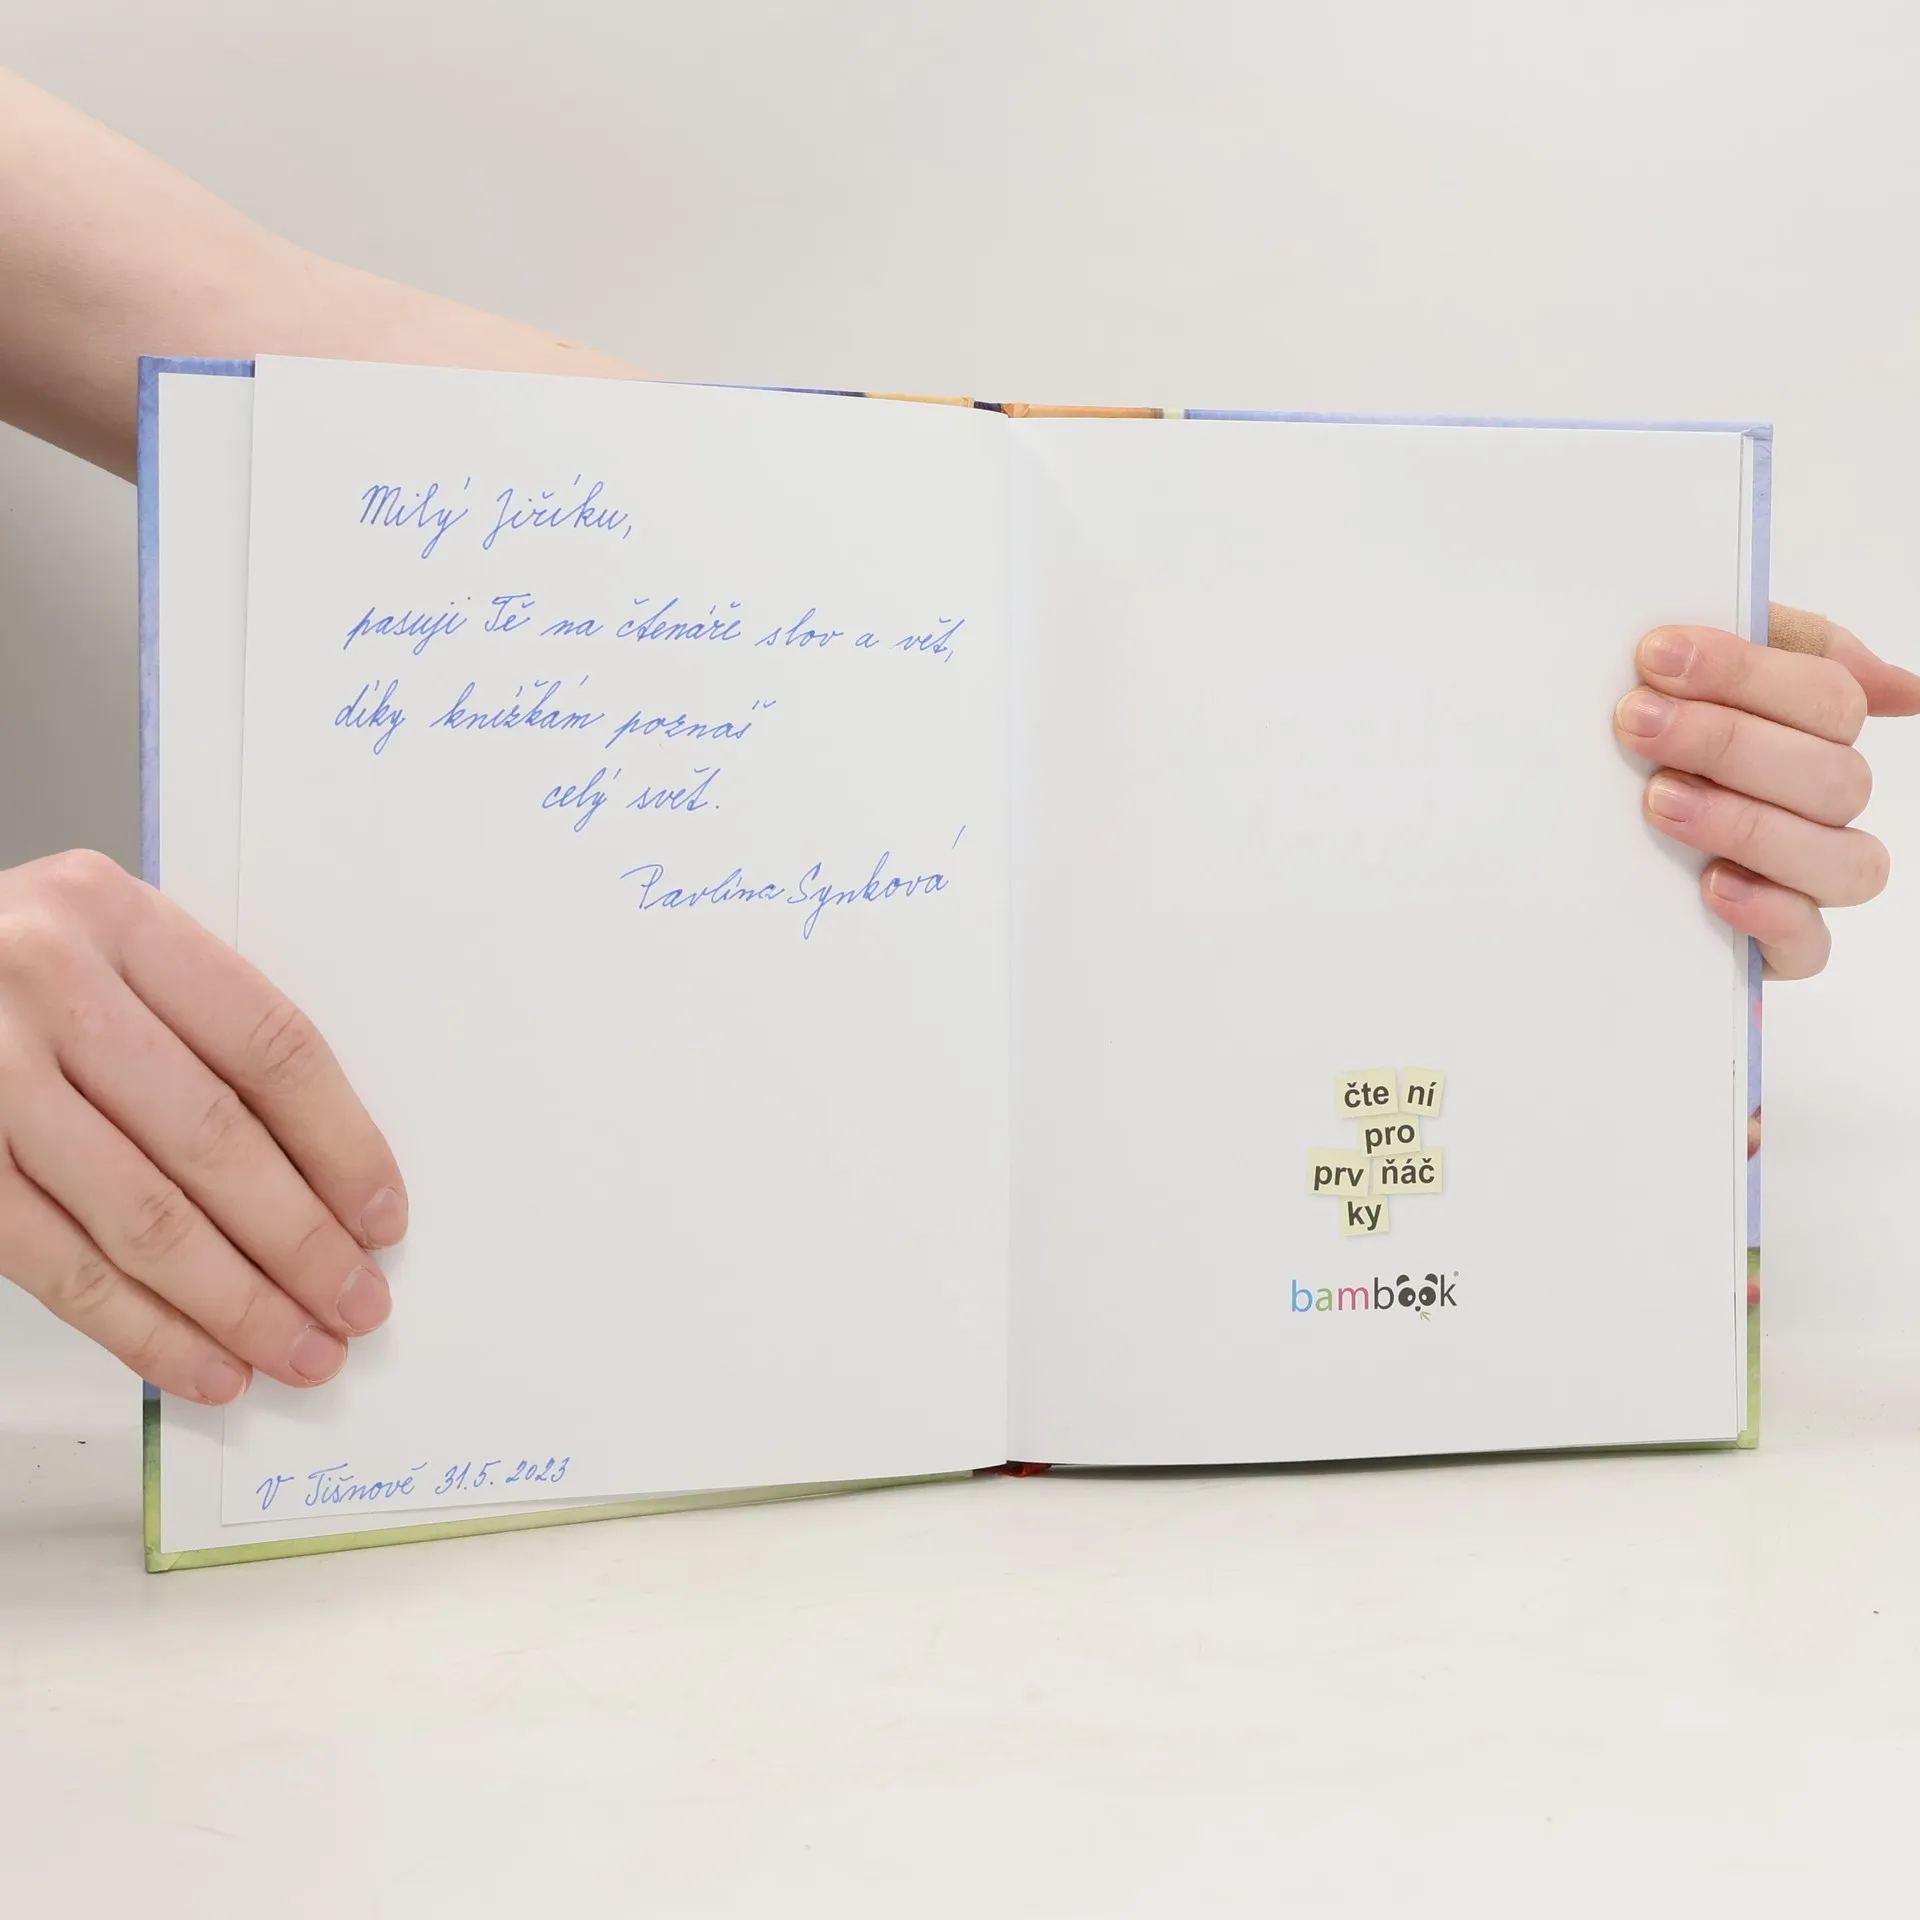 Milý Jiříku,
pasuji Tě na čtenáře slov a vět,
díky knížkám poznáš
celý svět.
Pavlína Synková
V Tišnově 31.5. 2023
čte ní
pro
prv ňáč
ky
bambook